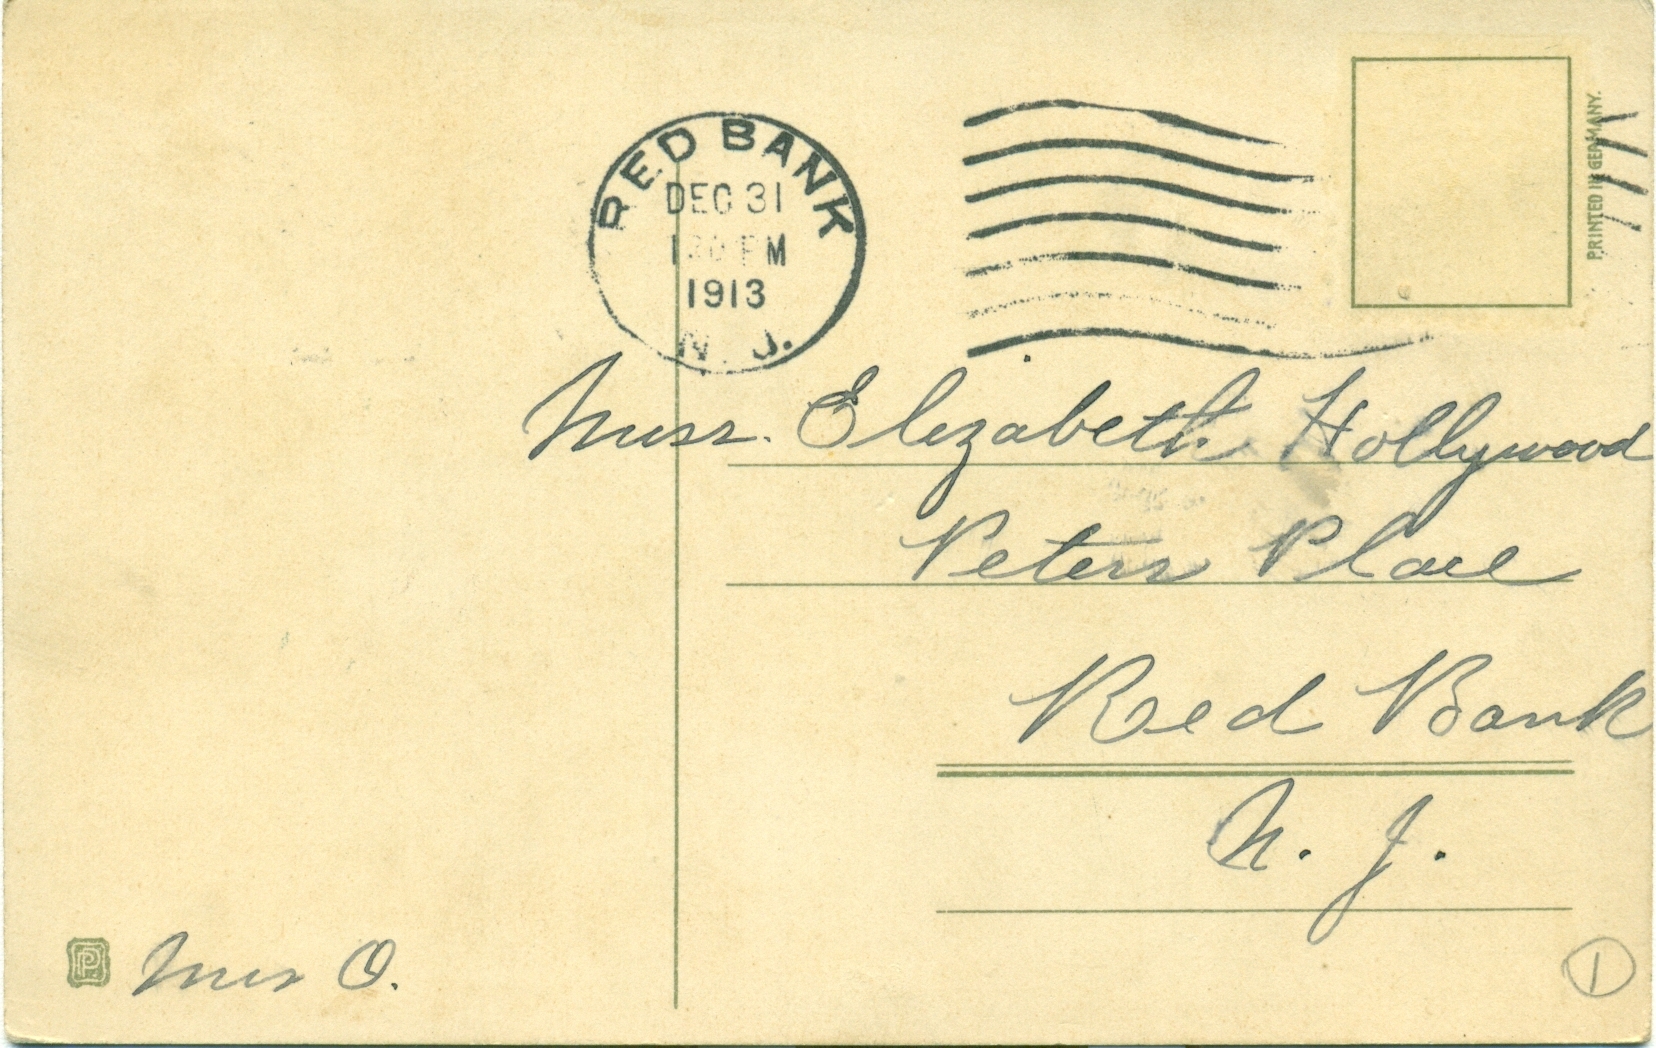 RED BANK
DEC 31
1 30 PM
1913
N. J.
PRINTED IN GERMANY.
Miss. Elizabeth Hollywood
Peters Place
Red Bank
N. J.
P
O.
1